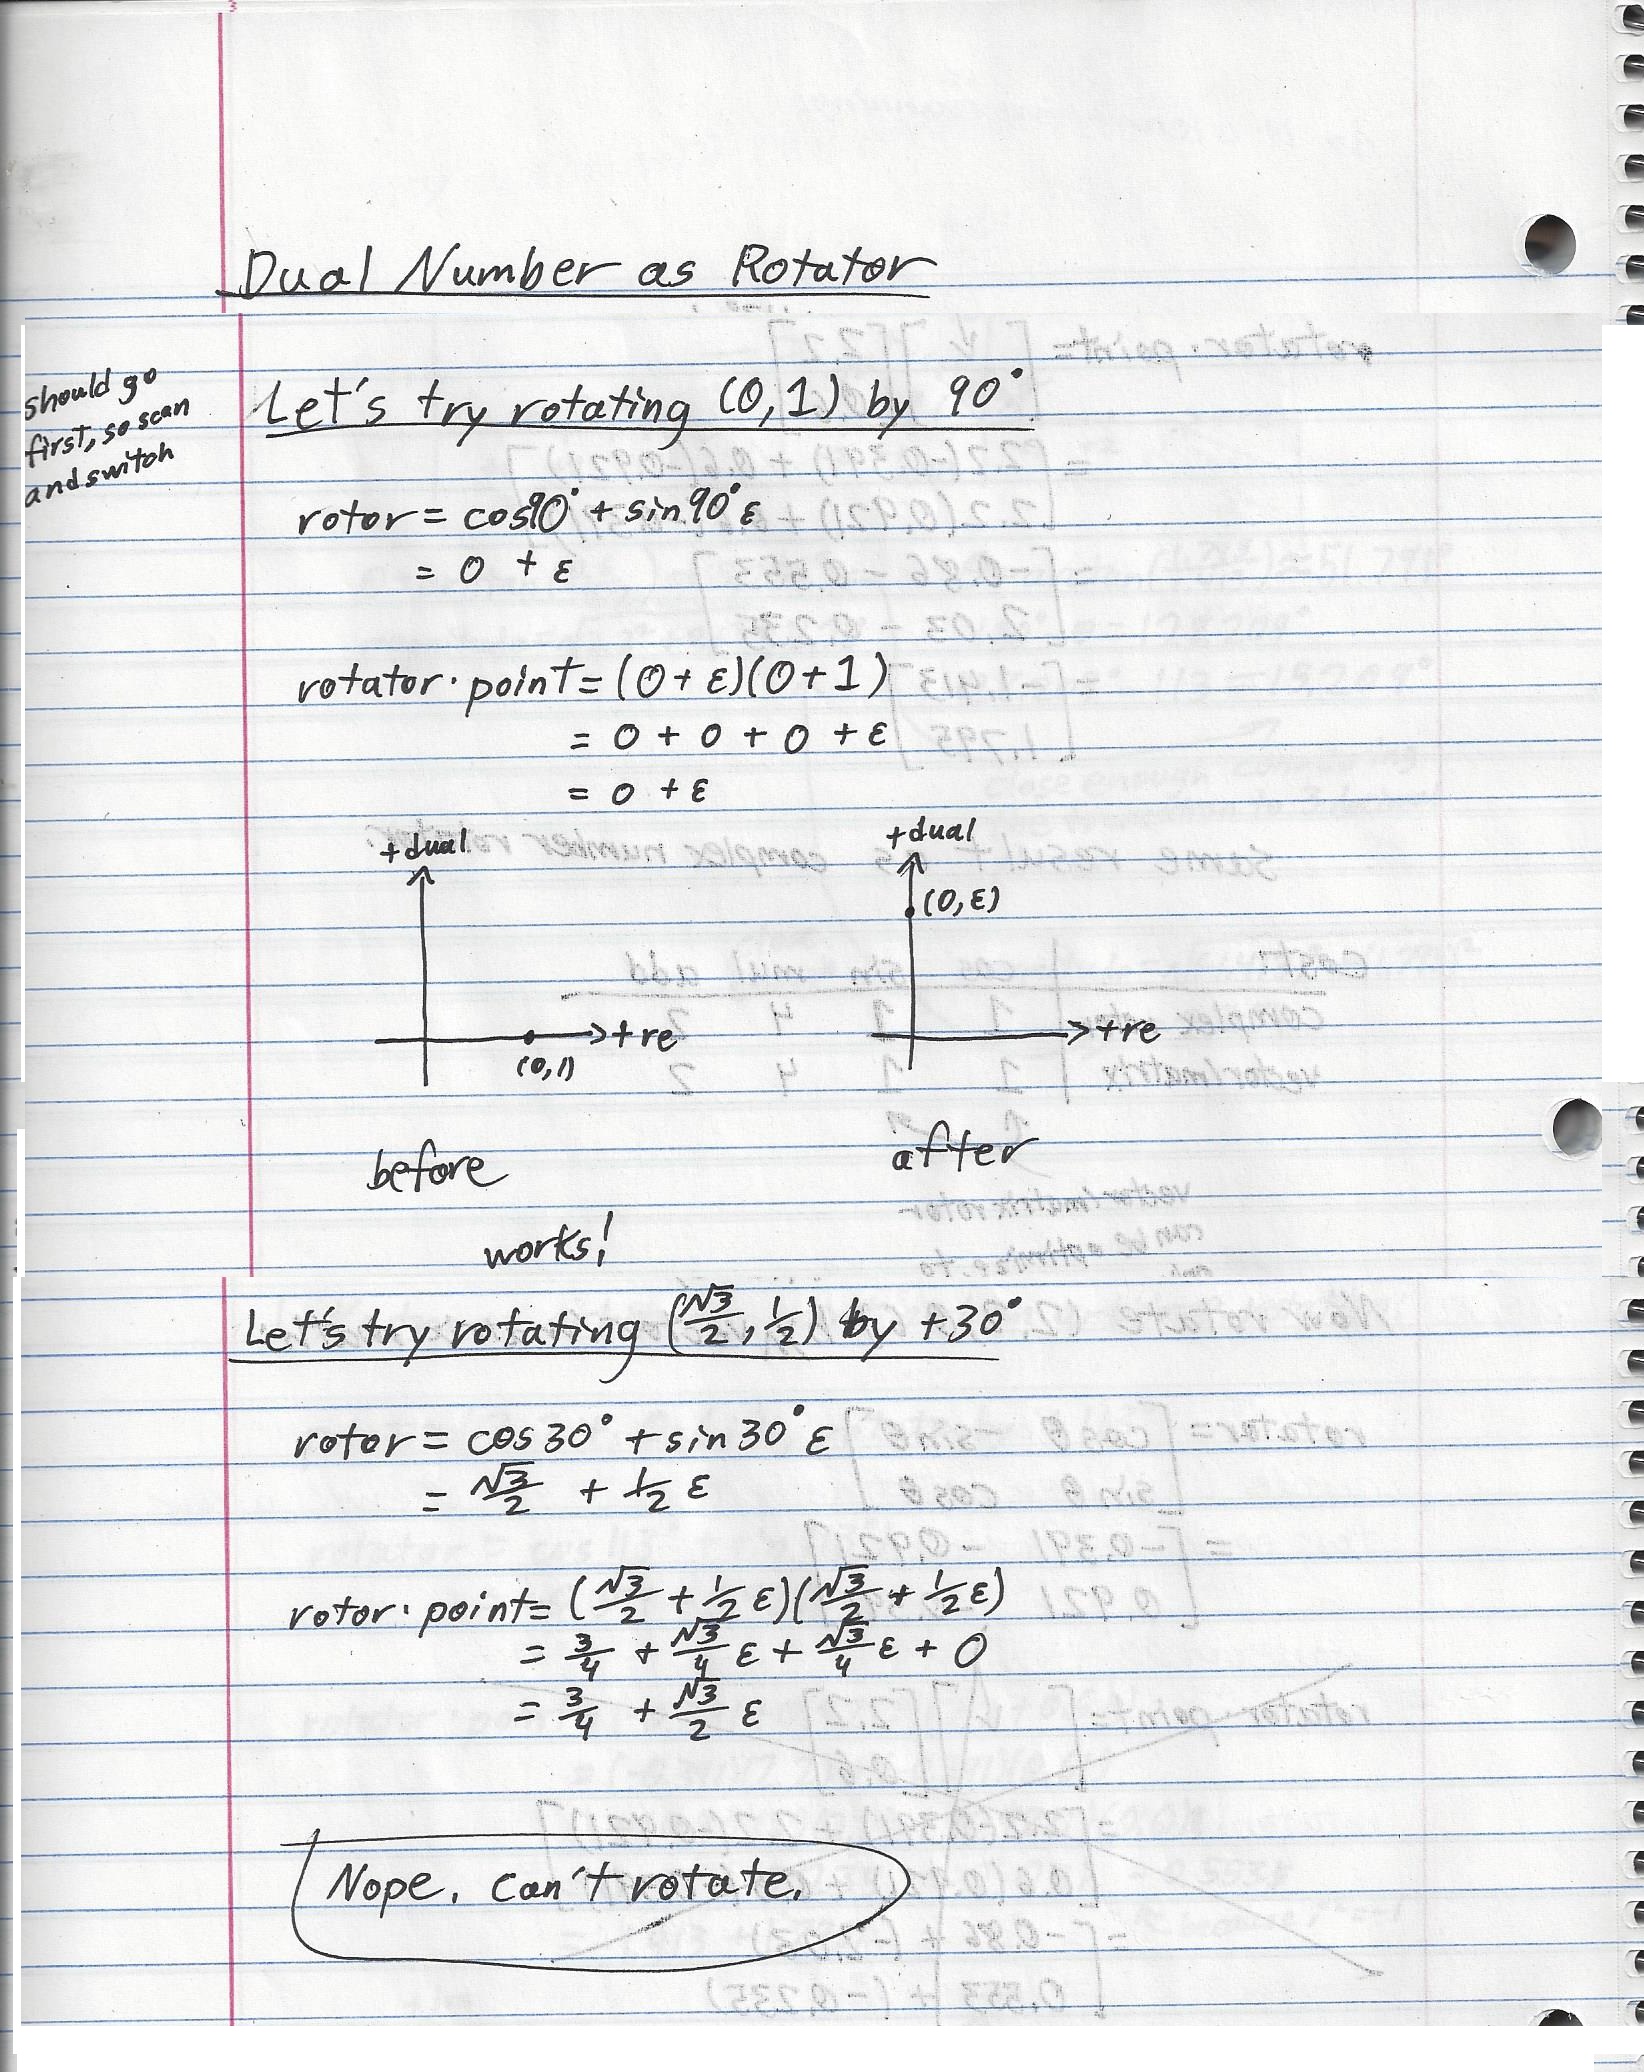 Dual Number as Rotator
should go
first, so scan
and switch
Let's try rotating (0,1) by 90°
rotor = cos90° + sin90°ε
= 0 + ε
rotator·point = (0+ε)(0+1)
= 0 + 0 + 0 + ε
= 0 + ε
+dual
+re
(0,1)
before
+dual
(0,ε)
+re
after
works!
Let's try rotating (√3/2, 1/2) by +30°
rotor = cos30° + sin30°ε
= √3/2 + 1/2 ε
rotor·point = (√3/2 + 1/2 ε)(√3/2 + 1/2 ε)
= 3/4 + √3/4 ε + √3/4 ε + 0
= 3/4 + √3/2 ε
Nope, can't rotate.